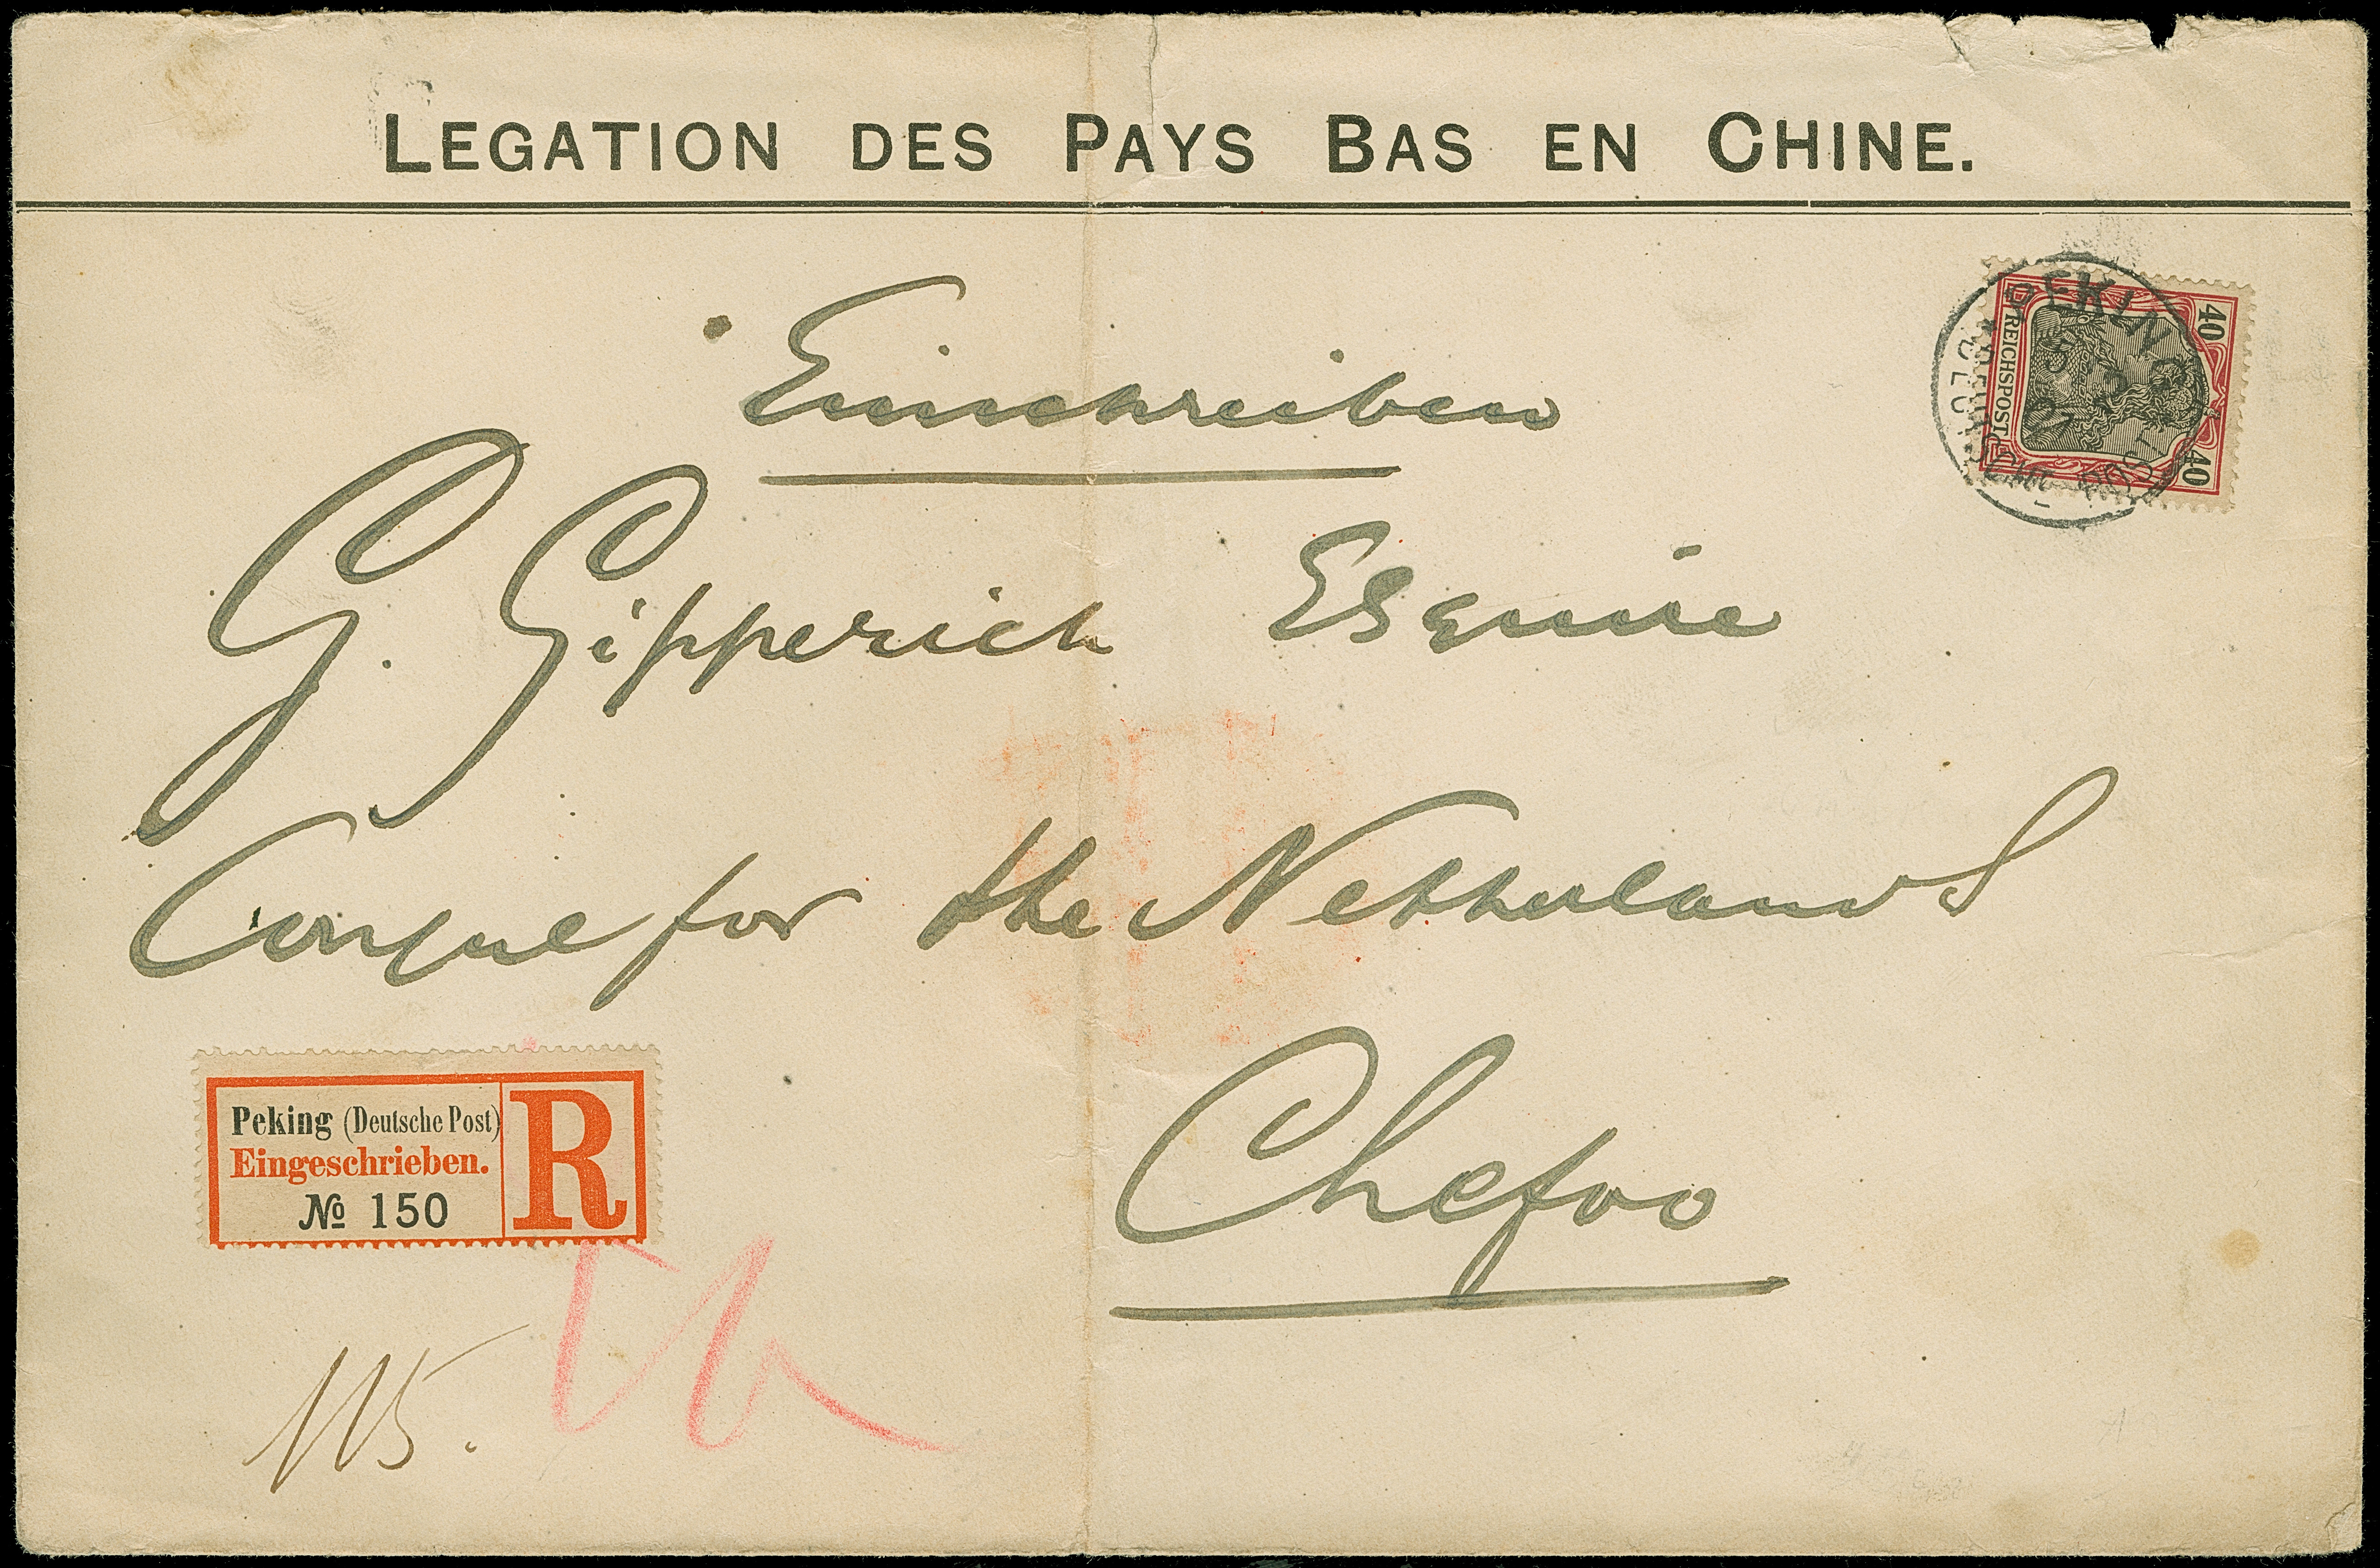 LEGATION DES PAYS BAS EN CHINE.
Einschreiben
40 REICHSPOST 40
PEKING
DEUTSCHE POST
G. Gipperich Esquire
Consul for the Netherlands
Chefoo
Peking (Deutsche Post)
Eingeschrieben.
№ 150
R
115.